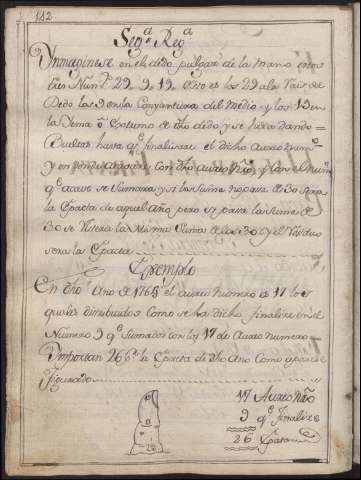 142
Seg.ª Reg.ª
Ymaginese en el dedo pulgar de la mano estos
tres Num.ˢ 29. 9. 19. esto es los 29 a la Raiz del
Dedo los 9 en la Conyuntura del Medio y los 19 en
la Yema ô Extremo de dho dedo y se hira dando =
Bueltas hasta q.ᵉ finalizare el dicho Aureo num.º
y en donde acavare con dho aureo Nño y con el num.º
q.ᵉ acave se Sumara y si la Suma no pasa de 30 sera
la Epacta de aquel Año, pero si pasa la Suma de
30 se restara la Misma Suma de los 30 y el residuo
sera la Epacta
Exemplo
En dho Ano de 1765 el aureo numero es 17 los
quales distribuidos como se ha dicho finalize en el
Numero 9 q.ᵉ Sumados con los 17 de Aureo numero
Ymportan 26 la Epacta de dho Ano Como aparese
figurado
17 Aureo Nño
9 q.ᵉ finalize
26 Epacta
29